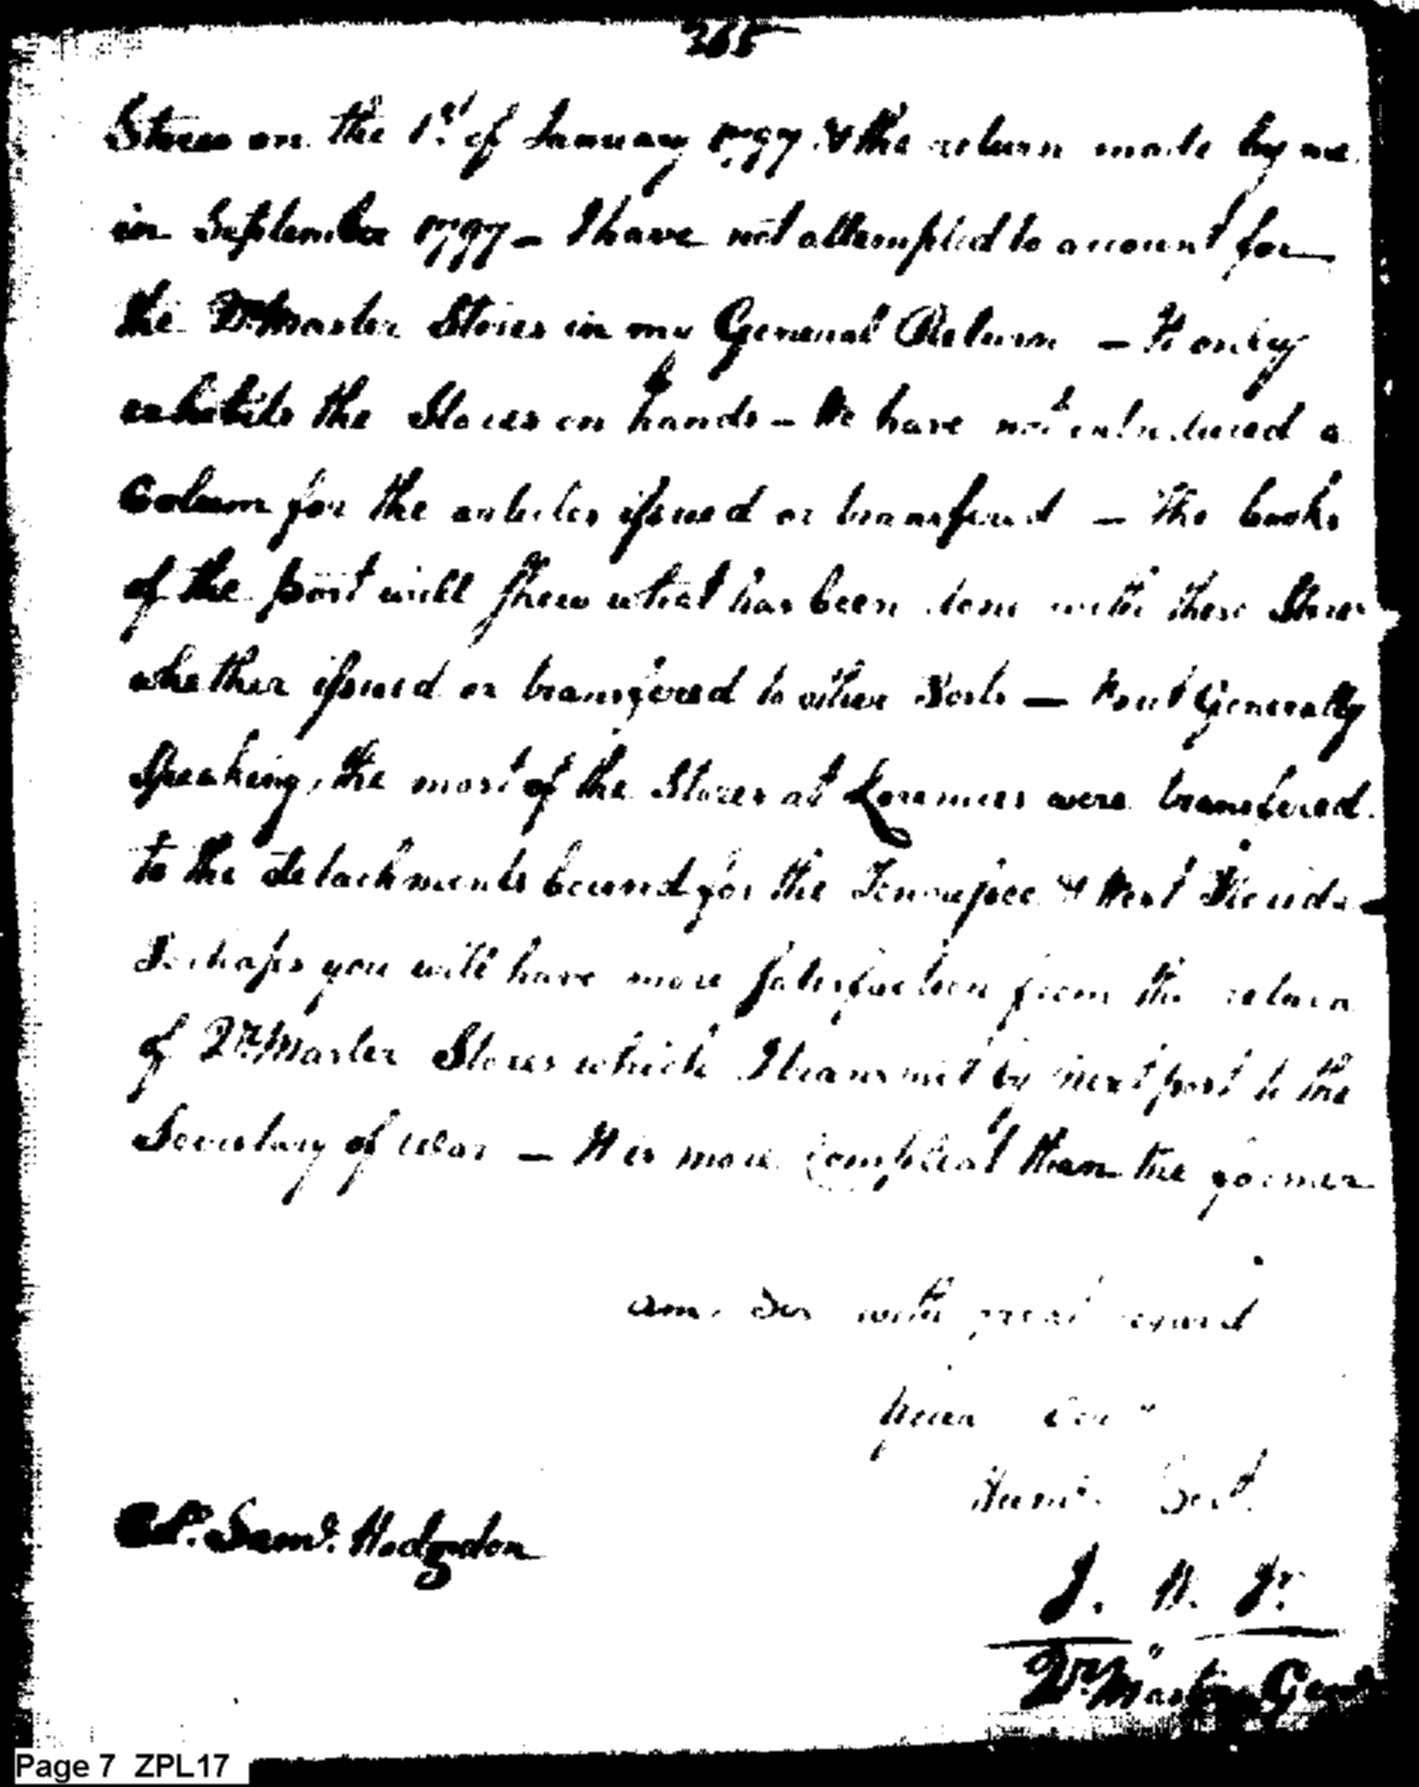 365
Stores on the 1st of January 1797 & the return made by me
in September 1797 — I have not attempted to account for
the Qr Master Stores in my General Return — It only
exhibits the Stores on hands — We have not introduced a
Column for the articles issued or transfered — The books
of the post will shew what has been done with these Stores
whether issued or transfered to other Posts — But Generally
speaking, the most of the Stores at Loramies were transfered
to the detachments bound for the Tennessee & West Florida —
Perhaps you will have more Satisfaction from the return
of Qr. Master Stores which I transmit by next post to the
Secretary of War — It is more Compleat than the former
am, Sir with great regard
Your
Humb. Servt.
Col. Saml. Hodgdon
J. W. Jr.
Qr. Master Genl
Page 7 ZPL17